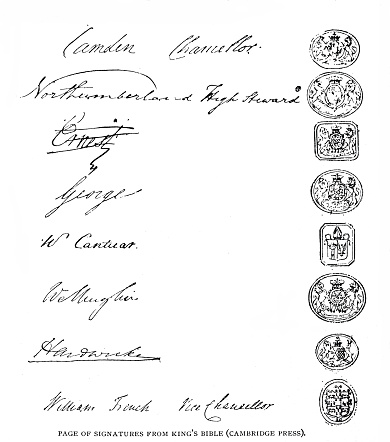 Camden Chancellor.
Northumberland High Steward
Ernest
George
W Cantuar.
Wellington
Hardwicke
William French Vice Chancellor
PAGE OF SIGNATURES FROM KING'S BIBLE (CAMBRIDGE PRESS).